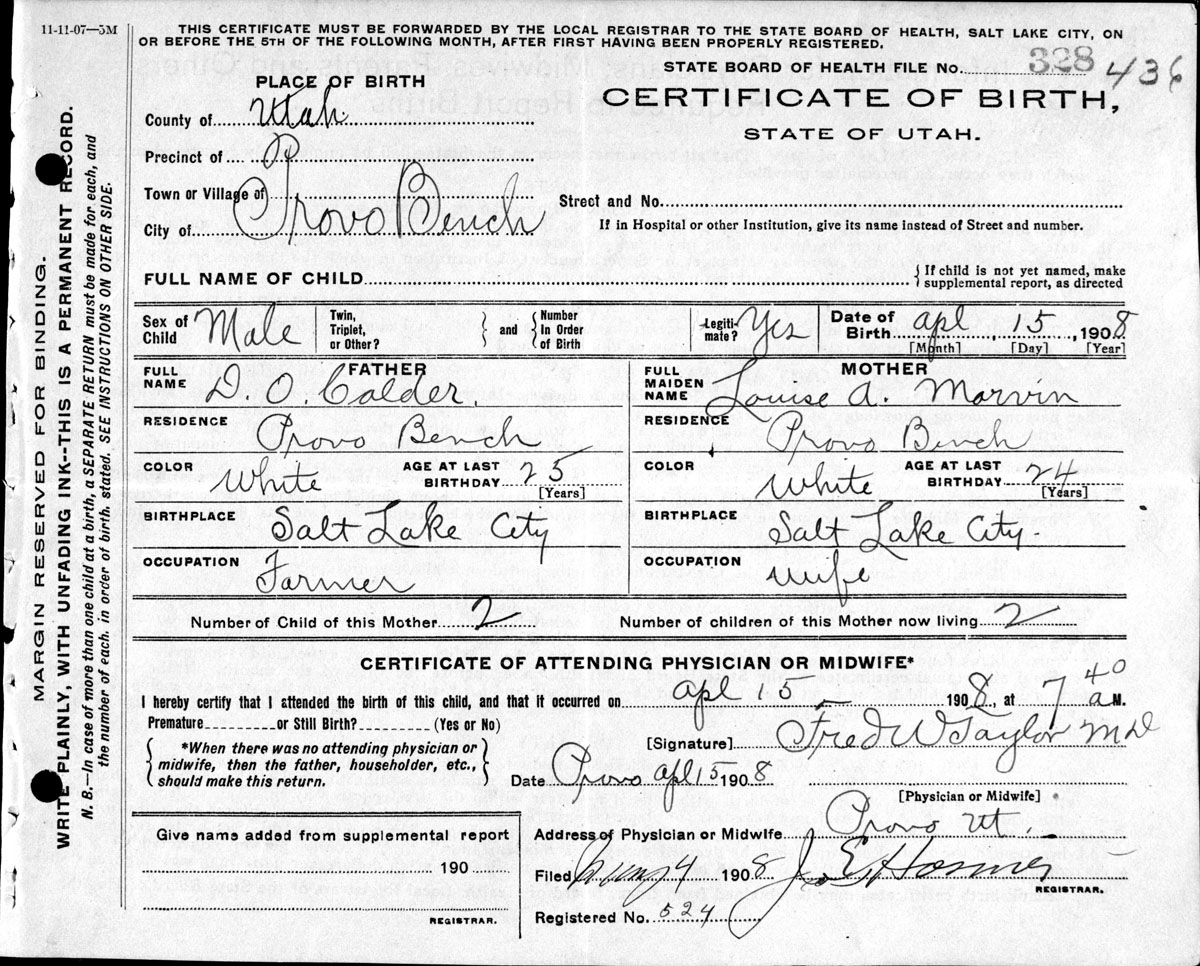 11-11-07—5M
THIS CERTIFICATE MUST BE FORWARDED BY THE LOCAL REGISTRAR TO THE STATE BOARD OF HEALTH, SALT LAKE CITY, ON
OR BEFORE THE 5TH OF THE FOLLOWING MONTH, AFTER FIRST HAVING BEEN PROPERLY REGISTERED.
STATE BOARD OF HEALTH FILE No. 328 436
PLACE OF BIRTH
CERTIFICATE OF BIRTH,
STATE OF UTAH.
County of Utah
Precinct of
Town or Village of
City of Provo Bench
Street and No.
If in Hospital or other Institution, give its name instead of Street and number.
FULL NAME OF CHILD
{ If child is not yet named, make
supplemental report, as directed
Sex of Child Male
Twin, Triplet, or Other? } and { Number In Order of Birth
Legitimate? Yes
Date of Birth apl 15, 1908
[Month] [Day] [Year]
FATHER
FULL NAME D. O. Calder.
RESIDENCE Provo Bench
COLOR White
AGE AT LAST BIRTHDAY 25 [Years]
BIRTHPLACE Salt Lake City
OCCUPATION Farmer
MOTHER
FULL MAIDEN NAME Louise A. Marvin
RESIDENCE Provo Bench
COLOR White
AGE AT LAST BIRTHDAY 24 [Years]
BIRTHPLACE Salt Lake City.
OCCUPATION wife
Number of Child of this Mother 2
Number of children of this Mother now living 2
CERTIFICATE OF ATTENDING PHYSICIAN OR MIDWIFE*
I hereby certify that I attended the birth of this child, and that it occurred on apl 15 1908, at 7 40 a M.
Premature or Still Birth? (Yes or No)
{ *When there was no attending physician or
midwife, then the father, householder, etc.,
should make this return. }
[Signature] Fred W Taylor M D
Date Provo apl 15 1908
[Physician or Midwife]
Give name added from supplemental report
190
REGISTRAR.
Address of Physician or Midwife Provo Ut.
Filed 4 1908
REGISTRAR.
Registered No. 524
MARGIN RESERVED FOR BINDING.
WRITE PLAINLY, WITH UNFADING INK--THIS IS A PERMANENT RECORD.
N. B.—In case of more than one child at a birth, a SEPARATE RETURN must be made for each, and
the number of each, in order of birth, stated. SEE INSTRUCTIONS ON OTHER SIDE.